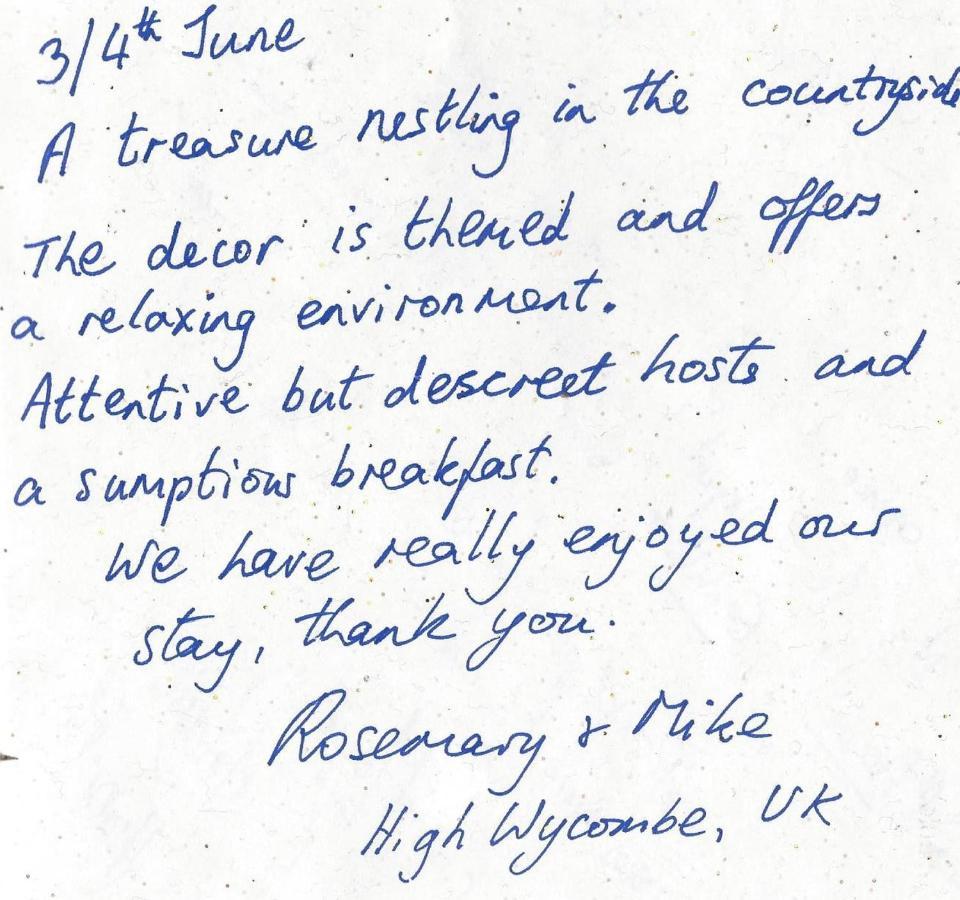 3/4th June
A treasure nestling in the countryside
The decor is themed and offers
a relaxing environment.
Attentive but descreet hosts and
a sumptious breakfast.
We have really enjoyed our
stay, thank you.
Rosemary & Mike
High Wycombe, UK